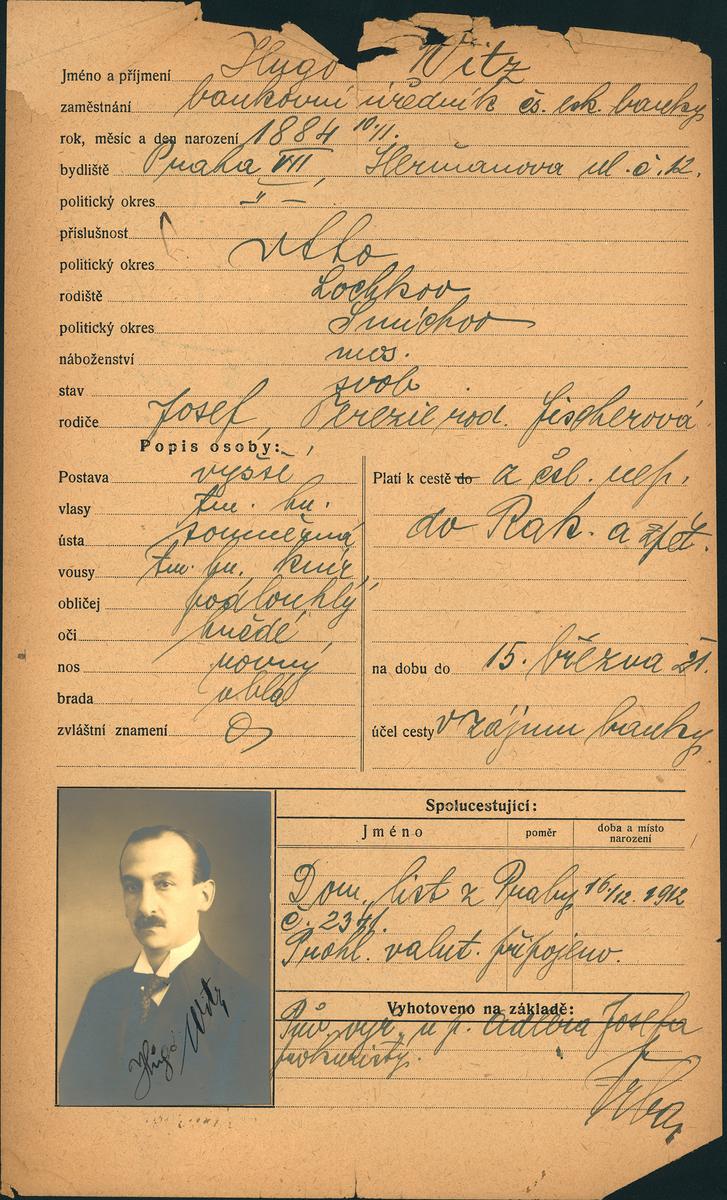 Jméno a příjmení Hugo Witz
zaměstnání bankovní úředník čs. esk. banky
rok, měsíc a den narození 1884 10/11.
bydliště Praha VII, Heřmanova ul. č. 12.
politický okres — " —
příslušnost
politický okres
rodiště Lochkov
politický okres Smíchov
náboženství mos.
stav svob.
rodiče Josef, Terezie rod. Fischerová
Popis osoby:
Postava vyšší
vlasy tm. hn.
ústa souměrná
vousy tm. hn. knír
obličej podlouhlý
oči hnědé
nos rovný
brada oblá
zvláštní znamení 0
Platí k cestě do z čsl. rep.
do Rak. a zpět.
na dobu do 15. března 21.
účel cesty v zájmu banky
Spolucestující:
Jméno poměr doba a místo narození
Dom. list z Prahy 16/12. 1912
č. 2341.
Prohl. valut. připojeno.
Vyhotoveno na základě:
Prův. vyr. u p. Adlera Josefa
prokuristy.
Hugo Witz